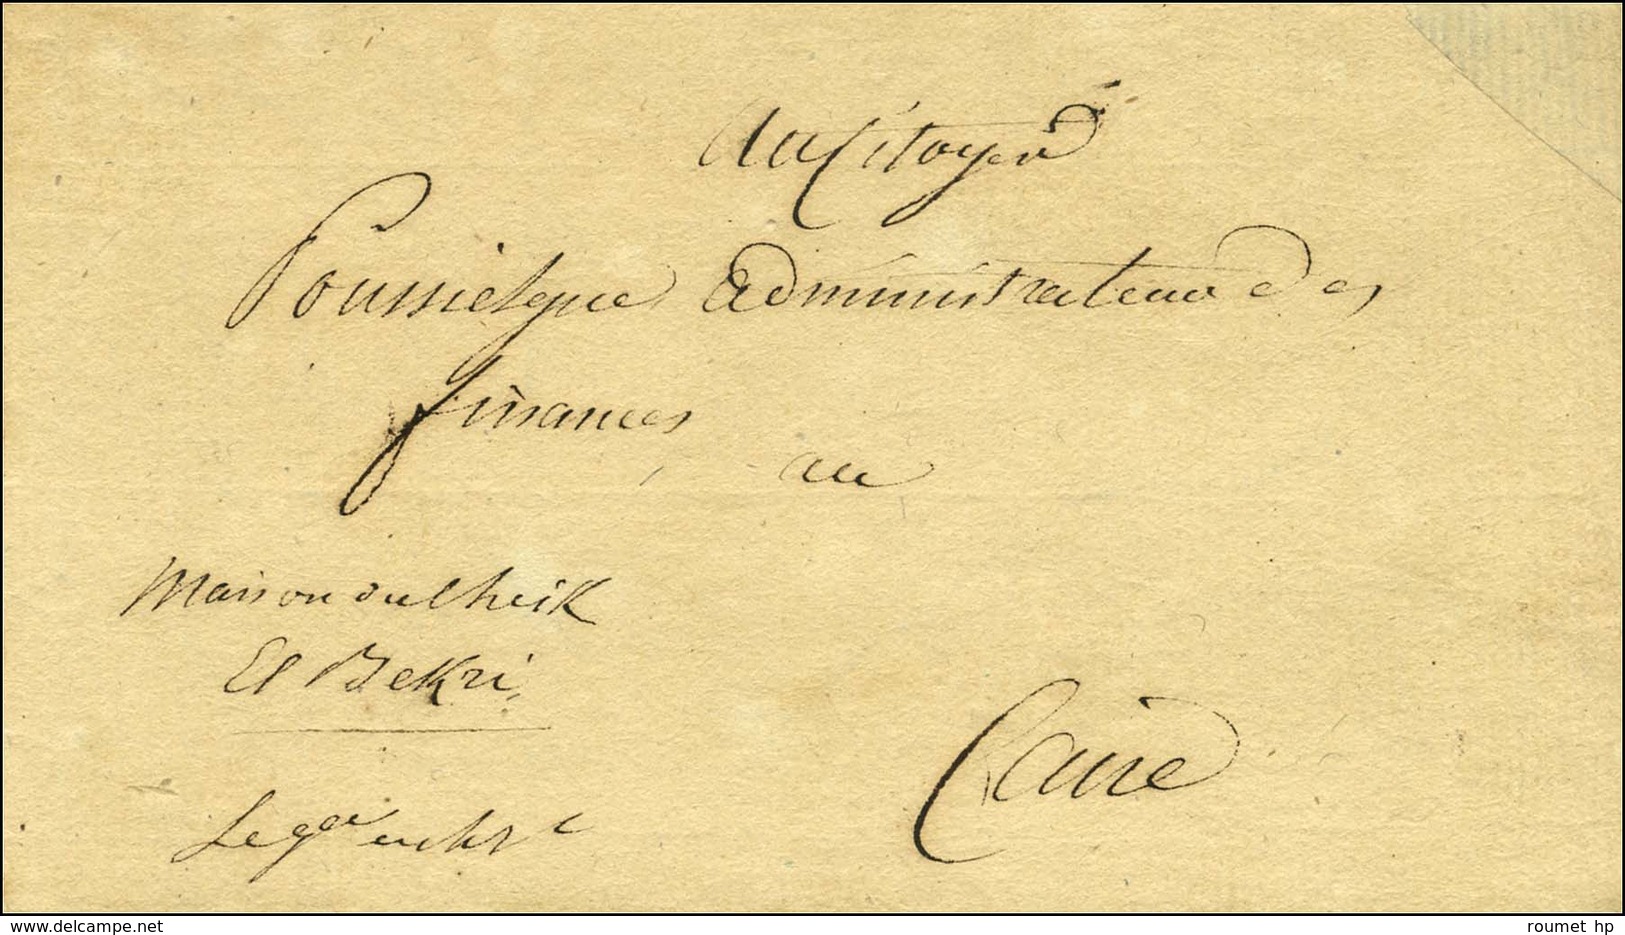 Au Citoyen
Poussielgue administrateur des
finances
au
Maison du Cheik
El Bekri,
Caire
Le gal en chef
www.delcampe.net
roumet hp